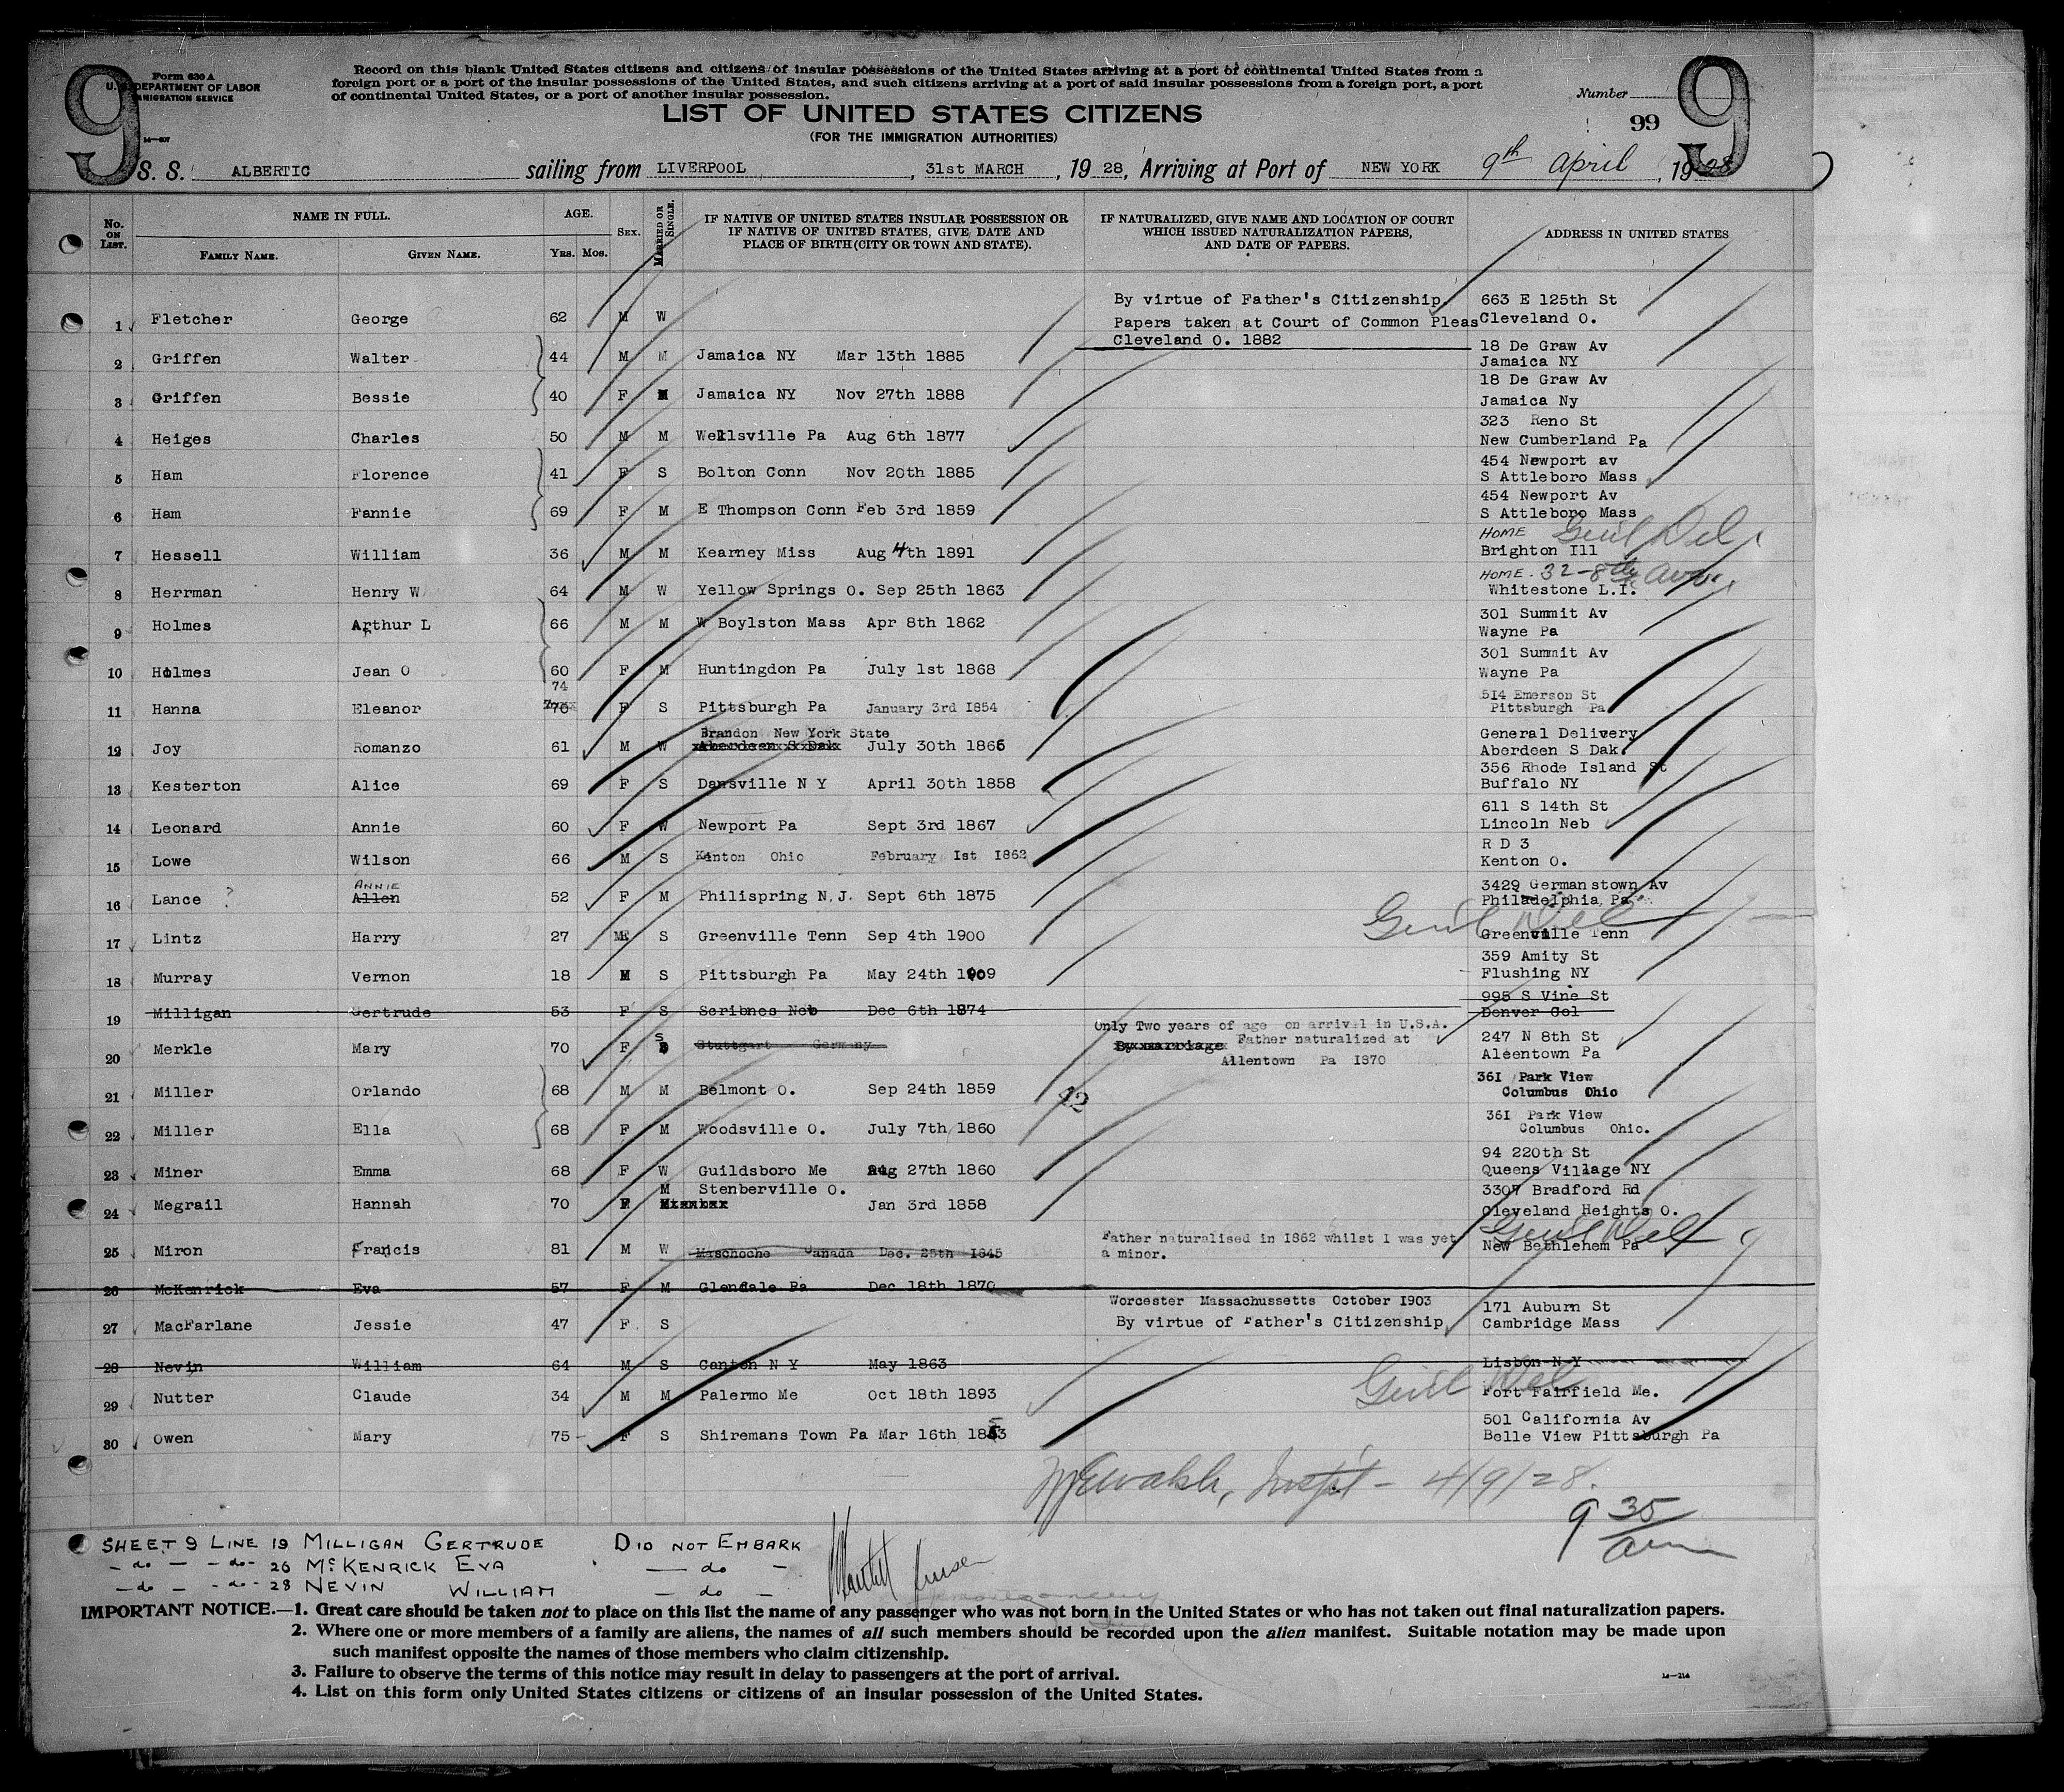 9
Form 630 A
U. S. DEPARTMENT OF LABOR
IMMIGRATION SERVICE
14—607
Record on this blank United States citizens and citizens of insular possessions of the United States arriving at a port of continental United States from a
foreign port or a port of the insular possessions of the United States, and such citizens arriving at a port of said insular possessions from a foreign port, a port
of continental United States, or a port of another insular possession.
Number
99
9
LIST OF UNITED STATES CITIZENS
(FOR THE IMMIGRATION AUTHORITIES)
S. S. ALBERTIC sailing from LIVERPOOL, 31st MARCH, 1928, Arriving at Port of NEW YORK 9th April, 1928
No. ON LIST. NAME IN FULL. FAMILY NAME. GIVEN NAME. AGE. YRS. MOS. SEX. MARRIED OR SINGLE. IF NATIVE OF UNITED STATES INSULAR POSSESSION OR IF NATIVE OF UNITED STATES, GIVE DATE AND PLACE OF BIRTH (CITY OR TOWN AND STATE). IF NATURALIZED, GIVE NAME AND LOCATION OF COURT WHICH ISSUED NATURALIZATION PAPERS, AND DATE OF PAPERS. ADDRESS IN UNITED STATES
1 Fletcher George 62 M W By virtue of Father's Citizenship. Papers taken at Court of Common Pleas Cleveland O. 1882 663 E 125th St Cleveland O.
2 Griffen Walter 44 M M Jamaica NY Mar 13th 1885 18 De Graw Av Jamaica NY
3 Griffen Bessie 40 F M Jamaica NY Nov 27th 1888 18 De Graw Av Jamaica Ny
4 Heiges Charles 50 M M Wellsville Pa Aug 6th 1877 323 Reno St New Cumberland Pa
5 Ham Florence 41 F S Bolton Conn Nov 20th 1885 454 Newport av S Attleboro Mass
6 Ham Fannie 69 F M E Thompson Conn Feb 3rd 1859 454 Newport Av S Attleboro Mass
7 Hessell William 36 M M Kearney Miss Aug 4th 1891 HOME Genl Del Brighton Ill
8 Herrman Henry W 64 M W Yellow Springs O. Sep 25th 1863 HOME. 32-8th Ave. Whitestone L.I.
9 Holmes Arthur L 66 M M W Boylston Mass Apr 8th 1862 301 Summit Av Wayne Pa
10 Holmes Jean O 60 F M Huntingdon Pa July 1st 1868 301 Summit Av Wayne Pa
11 Hanna Eleanor 74 70 F S Pittsburgh Pa January 3rd 1854 514 Emerson St Pittsburgh Pa
12 Joy Romanzo 61 M W Brandon New York State Aberdeen S Dak July 30th 1866 General Delivery Aberdeen S Dak.
13 Kesterton Alice 69 F S Dansville N Y April 30th 1858 356 Rhode Island St Buffalo NY
14 Leonard Annie 60 F W Newport Pa Sept 3rd 1867 611 S 14th St Lincoln Neb
15 Lowe Wilson 66 M S Kenton Ohio February 1st 1862 R D 3 Kenton O.
16 Lance ? ANNIE Allen 52 F M Philispring N.J. Sept 6th 1875 3429 Germanstown Av Philadelphia Pa
17 Lintz Harry 27 M S Greenville Tenn Sep 4th 1900 Genl Del Greenville Tenn
18 Murray Vernon 18 M S Pittsburgh Pa May 24th 1909 359 Amity St Flushing NY
19 Milligan Gertrude 53 F S Scribnes Neb Dec 6th 1874 995 S Vine St Denver Col
20 Merkle Mary 70 F S Stuttgart Germany Only Two years of age on arrival in U.S.A. By marriage Father naturalized at Allentown Pa 1870 247 N 8th St Aleentown Pa
21 Miller Orlando 68 M M Belmont O. Sep 24th 1859 12 361 Park View Columbus Ohio
22 Miller Ella 68 F M Woodsville O. July 7th 1860 361 Park View Columbus Ohio.
23 Miner Emma 68 F W Guildsboro Me Aug 27th 1860 94 220th St Queens Village NY
24 Megrail Hannah 70 F M Stenberville O. Jan 3rd 1858 3307 Bradford Rd Cleveland Heights O.
25 Miron Francis 81 M W Maschoche Canada Dec. 25th 1845 Father naturalised in 1862 whilst I was yet a minor. Genl Del New Bethlehem Pa
26 McKenrick Eva 57 F M Glendale Pa Dec 18th 1870
27 MacFarlane Jessie 47 F S Worcester Massachussetts October 1903 By virtue of Father's Citizenship 171 Auburn St Cambridge Mass
28 Nevin William 64 M S Canton N Y May 1863 Lisbon N Y
29 Nutter Claude 34 M M Palermo Me Oct 18th 1893 Genl Del Fort Fairfield Me.
30 Owen Mary 75 F S Shiremans Town Pa Mar 16th 1853 501 California Av Belle View Pittsburgh Pa
Walsh, Inspt - 4/9/28.
9 35 am
SHEET 9 LINE 19 MILLIGAN GERTRUDE DID NOT EMBARK
- do - - do - 26 McKENRICK EVA - do -
- do - - do - 28 NEVIN WILLIAM - do -
IMPORTANT NOTICE.—1. Great care should be taken not to place on this list the name of any passenger who was not born in the United States or who has not taken out final naturalization papers.
2. Where one or more members of a family are aliens, the names of all such members should be recorded upon the alien manifest. Suitable notation may be made upon
such manifest opposite the names of those members who claim citizenship.
3. Failure to observe the terms of this notice may result in delay to passengers at the port of arrival.
14—214
4. List on this form only United States citizens or citizens of an insular possession of the United States.